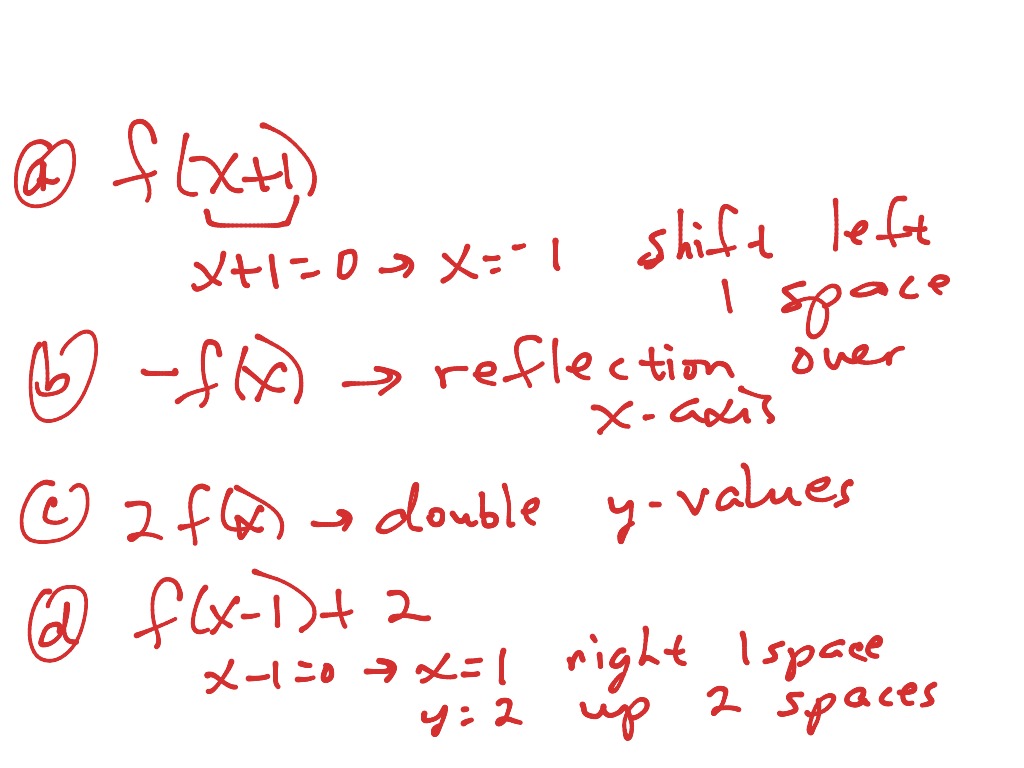 ⓐ f(x+1)
x+1=0 → x=-1 shift left
1 space
ⓑ -f(x) → reflection over
x-axis
ⓒ 2f(x) → double y-values
ⓓ f(x-1)+2
x-1=0 → x=1 right 1 space
y=2 up 2 spaces